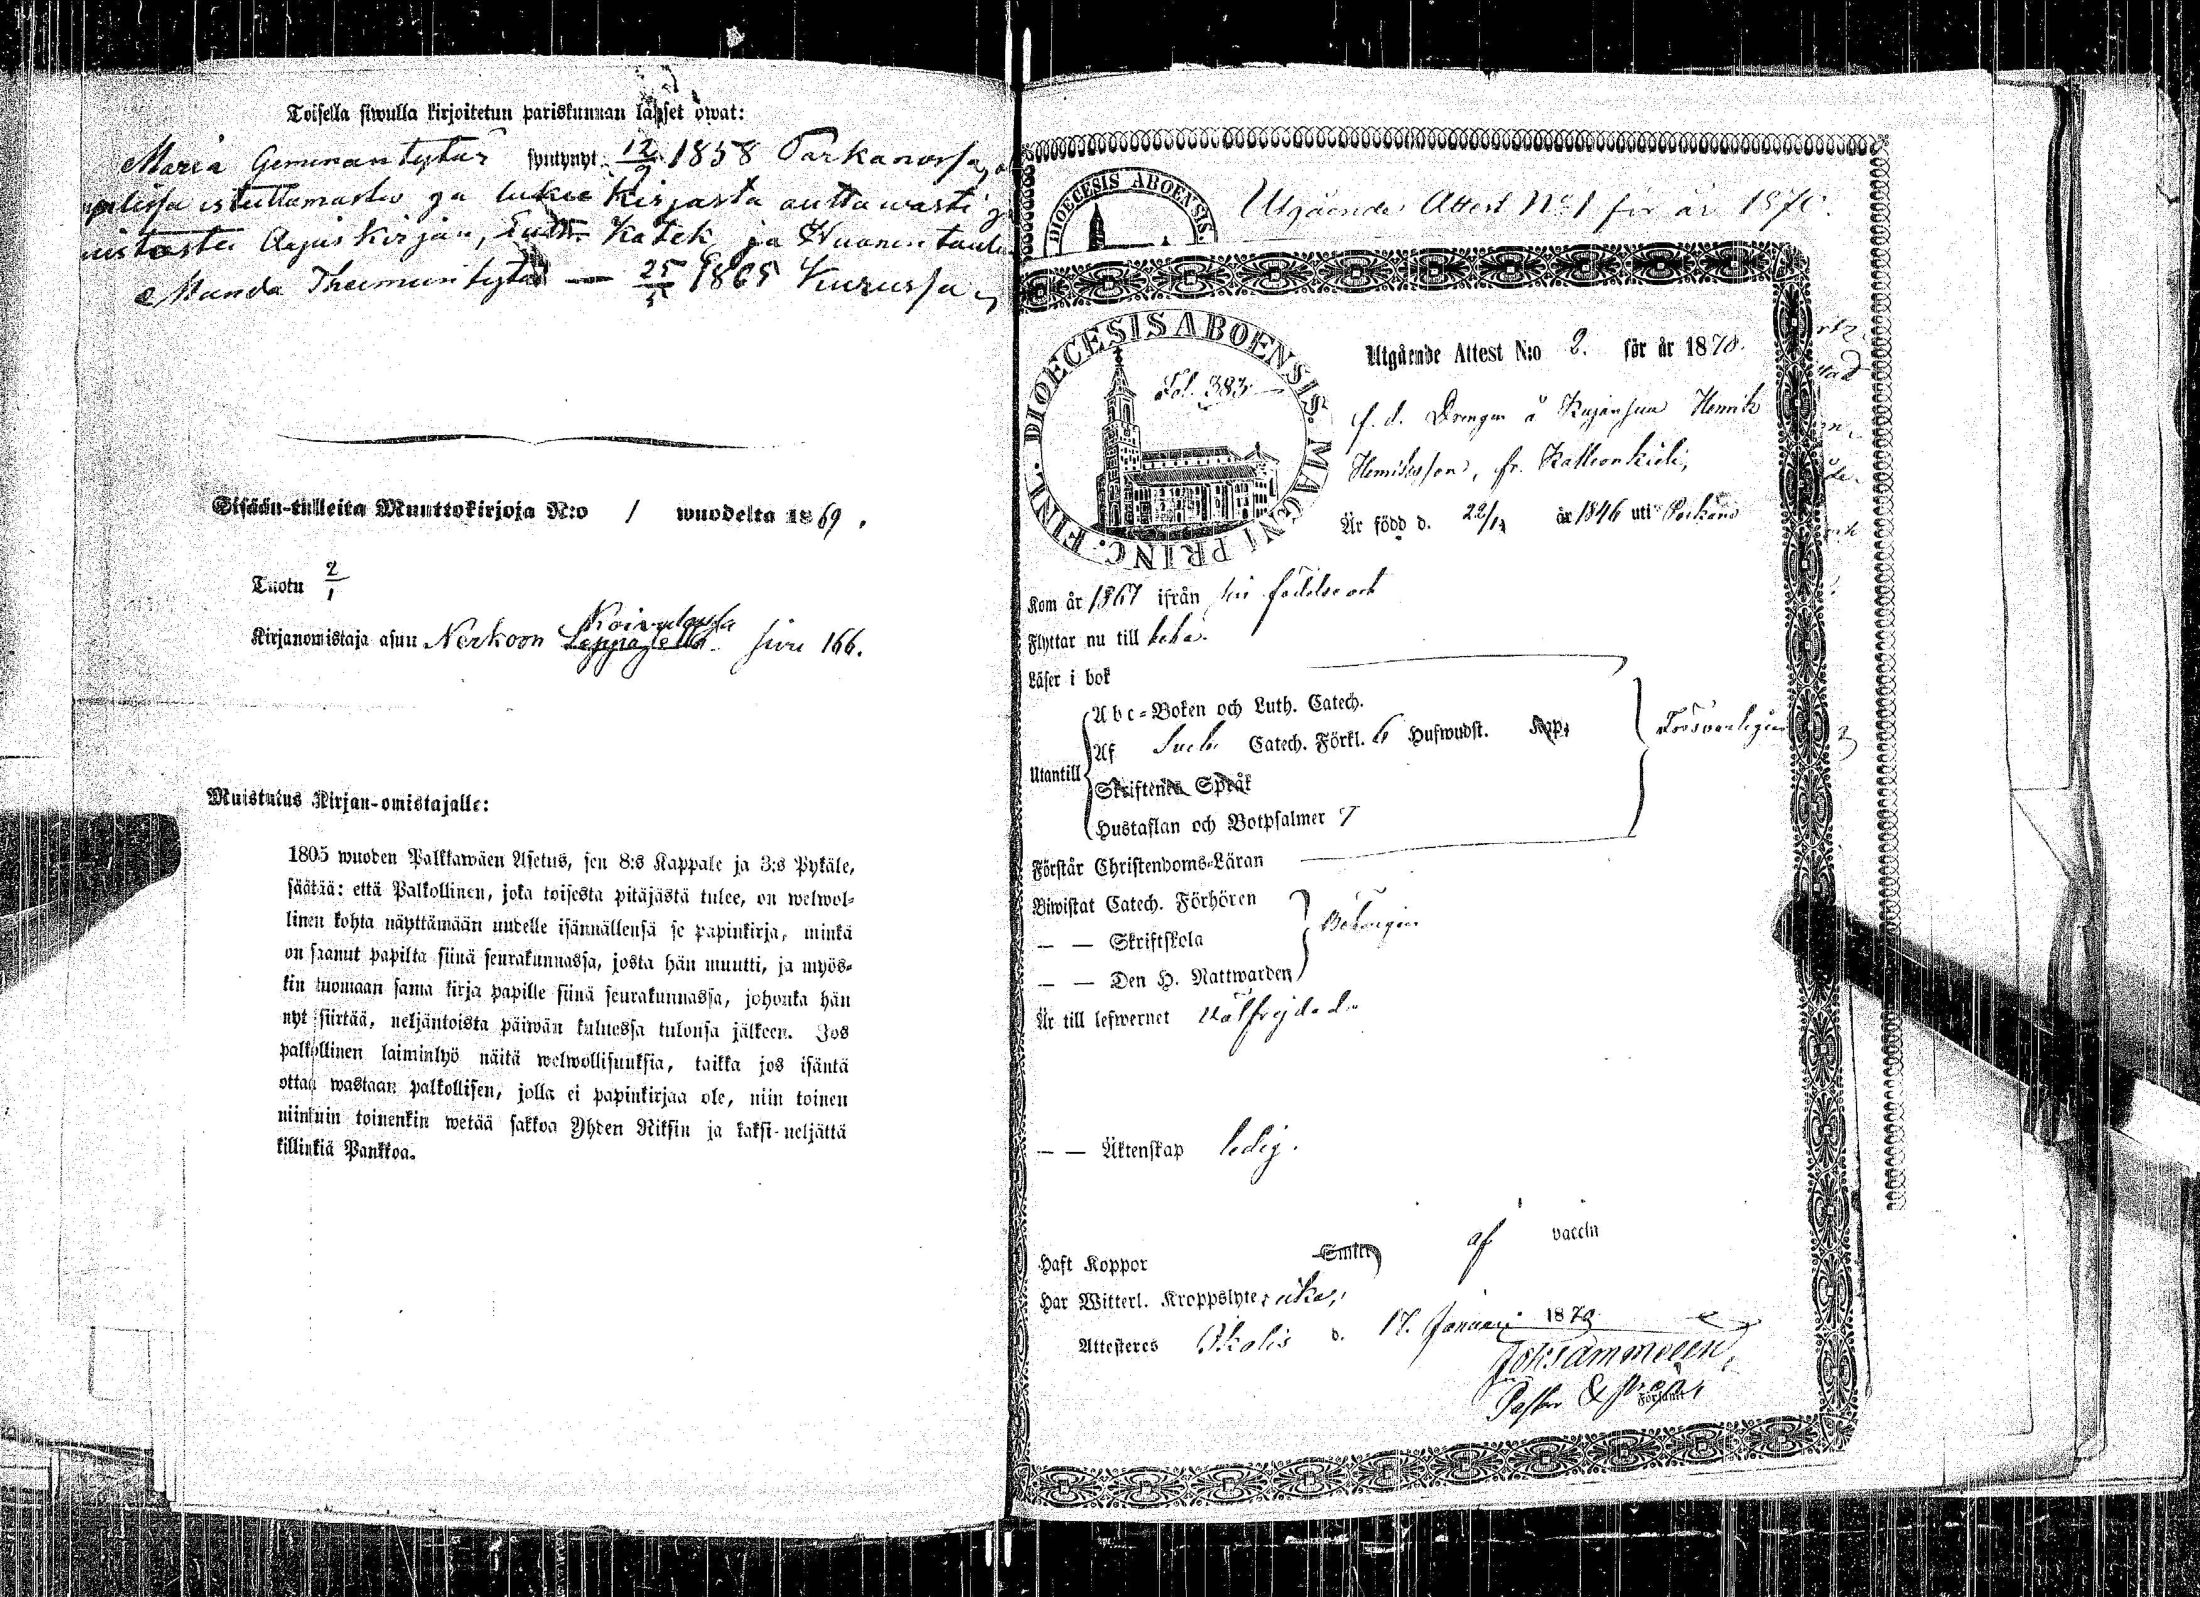 Toisella siwulla kirjoitetun pariskunnan lapset owat:
Maria Gemmantytär syntynyt 12/9 1858 Parkanossa,
istuttamasta ja lukee kirjasta auttawasti
Aapiskirjan, Luth. Katek. ja Huonen taulu
Manda Theemuntytär — 25/5 1865 Kurussa
Sisään-tulleita Muuttokirjoja N:o 1 wuodelta 1869.
Tuotu 2/1
Koivulassa
Kirjanomistaja asuu Nerkoon Leppajella siwu 166.
Muistutus Kirjan-omistajalle:
1805 wuoden Palkkawäen Asetus, sen 8:s Kappale ja 3:s Pykäle,
säätää: että Palkollinen, joka toisesta pitäjästä tulee, on welwol-
linen kohta näyttämään uudelle isännällensä se papinkirja, minkä
on saanut papilta siinä seurakunnassa, josta hän muutti, ja myös-
kin tuomaan sama kirja papille siinä seurakunnassa, johonka hän
nyt siirtää, neljäntoista päiwän kuluessa tulonsa jälkeen. Jos
palkollinen laiminlyö näitä welwollisuuksia, taikka jos isäntä
ottaa wastaan palkollisen, jolla ei papinkirjaa ole, niin toinen
niinkuin toinenkin wetää sakkoa Yhden Riksin ja kaksi-neljättä
killinkiä Pankkoa.
DIOECESIS ABOENSIS.
Utgående Attest No 1 för år 1870.
FINL. DIOECESIS ABOENSIS. MAGNI PRINC.
Fol. 383
Utgående Attest N:o 2. för år 1870.
f. d. Drengen å Kujanpää Henrik
Henriksson, fr.
Är född d. 22/12 år 1846 uti Parkano
Kom år 1867 ifrån sin födelseort
Flyttar nu till
Läser i bok
Utantill
Abc-Boken och Luth. Catech.
Af Catech. Förkl. 6 Hufwudst. Kap.
Skriftenes Språk
Hustaflan och Botpsalmer 7
Förswarligen
Förstår Christendoms-Läran
Biwistat Catech. Förhören
— — Skriftskola
— — Den H. Nattwarden
Behörigen
Är till lefwernet Välfrejdad.
— — Äktenskap ledig.
Haft Koppor Smitt af vaccin
Har Witterl. Kroppslyte: icke.
Attesteres Ikalis d. 17. Januari 1870
Joh Sammelen
Pastor &
Församl.